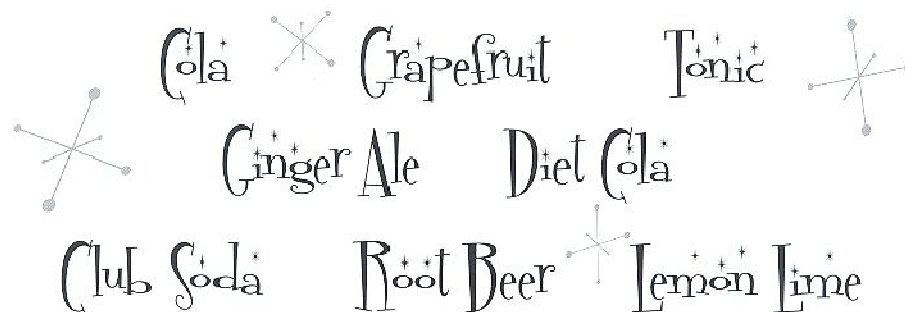 Cola Grapefruit Tonic
Ginger Ale Diet Cola
Club Soda Root Beer Lemon Lime